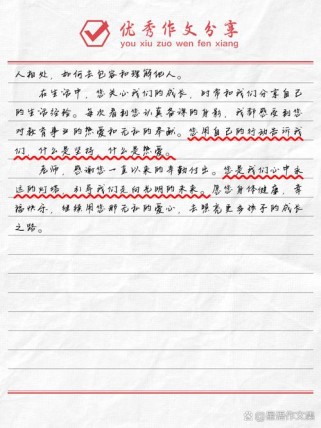 优秀作文分享
you xiu zuo wen fen xiang
人相处，如何去包容和理解他人。
在生活中，您关心我们的成长，时常和我们分享自己
的生活经验。每次看到您认真备课的身影，我都感受到您
对教育事业的热爱和无私的奉献。您用自己的行动告诉我
们，什么是坚持，什么是热爱。
老师，感谢您一直以来的辛勤付出。您是我们心中永
远的灯塔，引导我们走向光明的未来。愿您身体健康，幸
福快乐，继续用您那无私的爱心，去照亮更多孩子的成长
之路。
@届届作文集